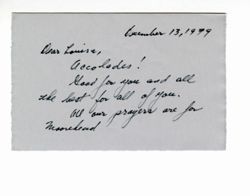 December 13, 1979
Dear Louise,
Accolades!
Good for you and all
the best for all of you.
All our prayers are for
Moorehead